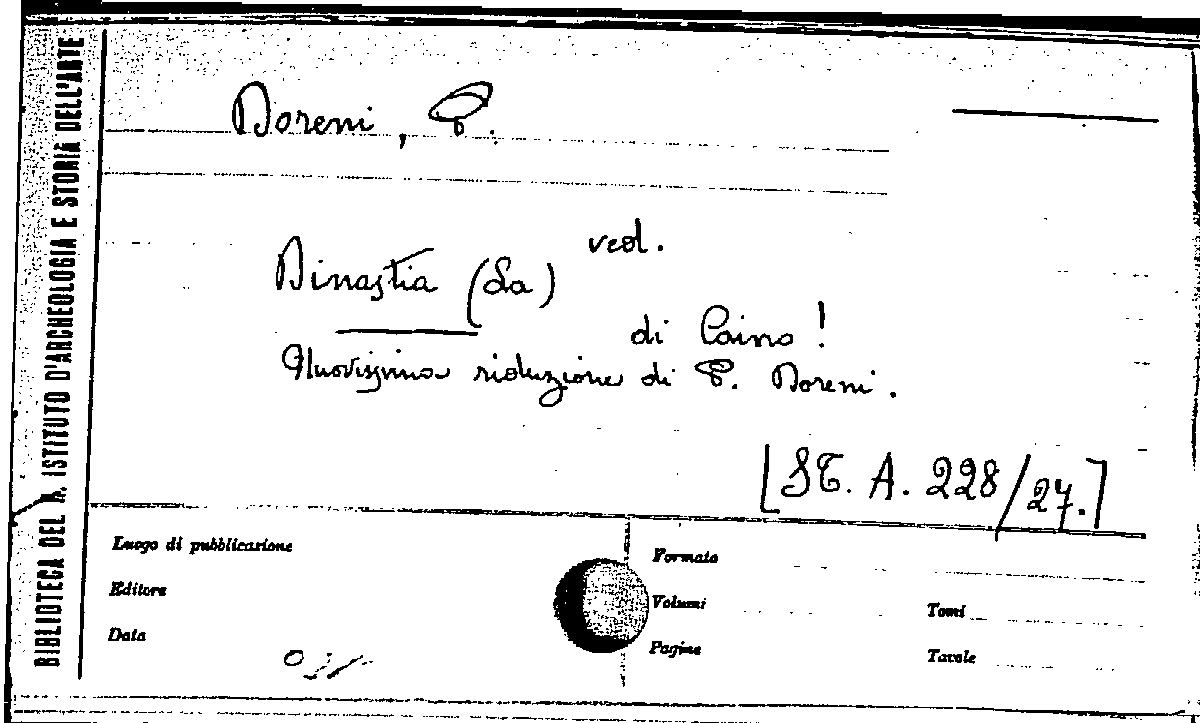 BIBLIOTECA DEL R. ISTITUTO D'ARCHEOLOGIA E STORIA DELL'ARTE
Doreni, P.
ved.
Dinastia (La)
di Caino!
Nuovissima riduzione di P. Doreni.
[ST. A. 228/27.]
Luogo di pubblicazione
Editore
Data
Formato
Volumi
Pagine
Tomi
Tavole